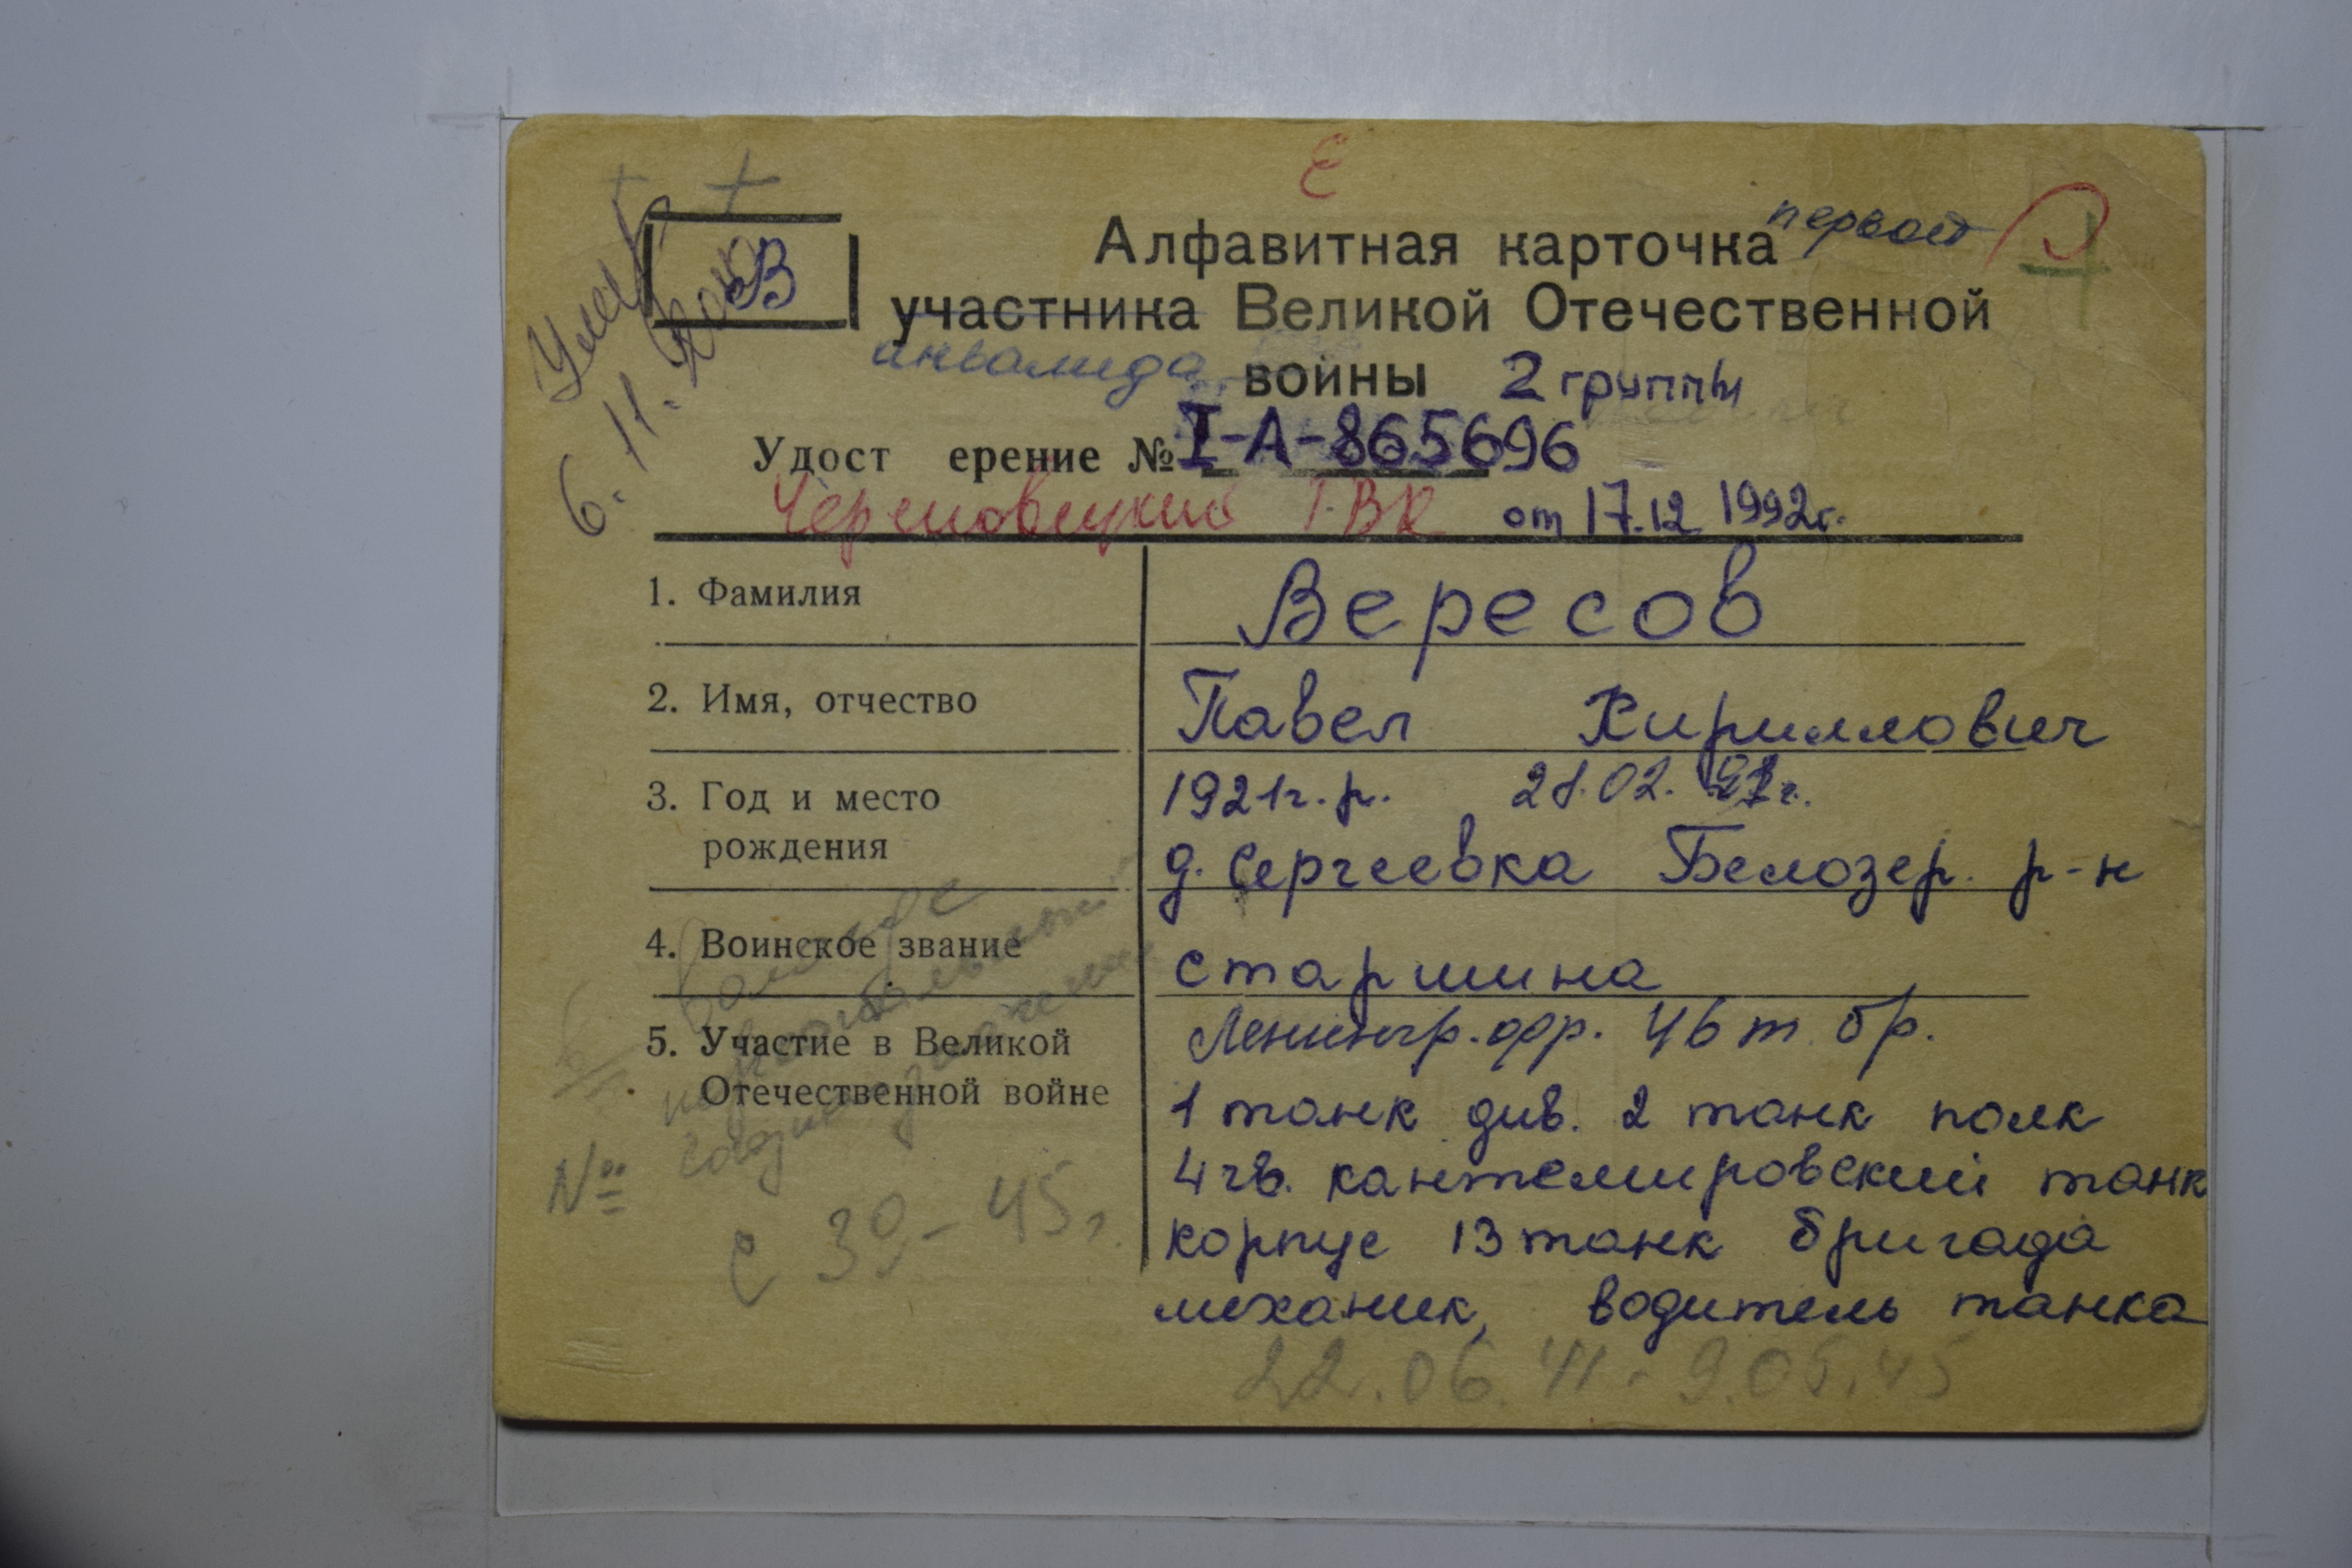 Е
Умер
6. 11.
В
Алфавитная карточка первой
участника Великой Отечественной
инвалида войны 2 группы
Удост ерение № I-А-865696
Череповецкий ГВК от 17.12 1992г.
1. Фамилия Вересов
2. Имя, отчество Павел Кириллович
3. Год и место 1921г.р. 21.02.
рождения д. Сергеевка Белозер. р-н
4. Воинское звание старшина
5. Участие в Великой Ленингр. фр. 46 т. бр.
Отечественной войне 1 танк див. 2 танк полк
4 гв. кантемировский танк
корпус 13 танк бригада
механик, водитель танка
22.06.41. 9.05.45
№
с 39-45г.